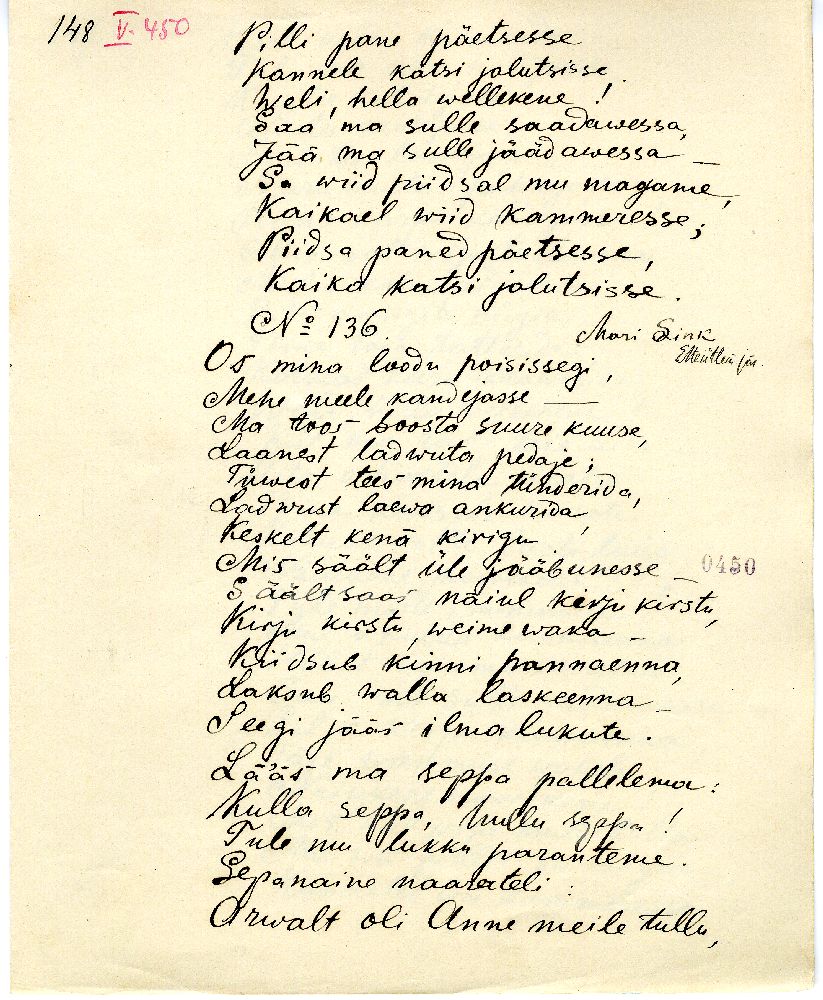 148 V. 450
Pilli pane päetsesse
Kannele katsi jalutsisse.
Weli, hella wellekene!
Saa ma sulle saadawessa,
Jää ma sulle jäädawessa —
Sa wiid piidsal mu magame,
Kaikael wiid kammeresse;
Piidsa paned päetsesse,
Kaika katsi jalutsisse.
No 136.
Mari Sink
Os mina loodu poisissegi,
Mehe meele kandejasse —
Ma toos soosta suure kuuse,
Laanest ladwuta pedaje;
Tüwest tees mina tünderida,
Ladwust laewa ankurida,
Keskelt kenä kirigu
Mis säält üle jääbunesse —
0450
Säält saas näiul kirju kirstu,
Kirju kirstu, weime waka —
Kiidsub kinni pannaenna,
Laksub walla laskeenna —
Seegi jääs ilma lukute.
Lääs ma seppa pallelema:
Kulla seppa, hullu seppa!
Tule mu lukku paranteme.
Sepanaine naarateli:
Arwalt oli Anne meile tullu,